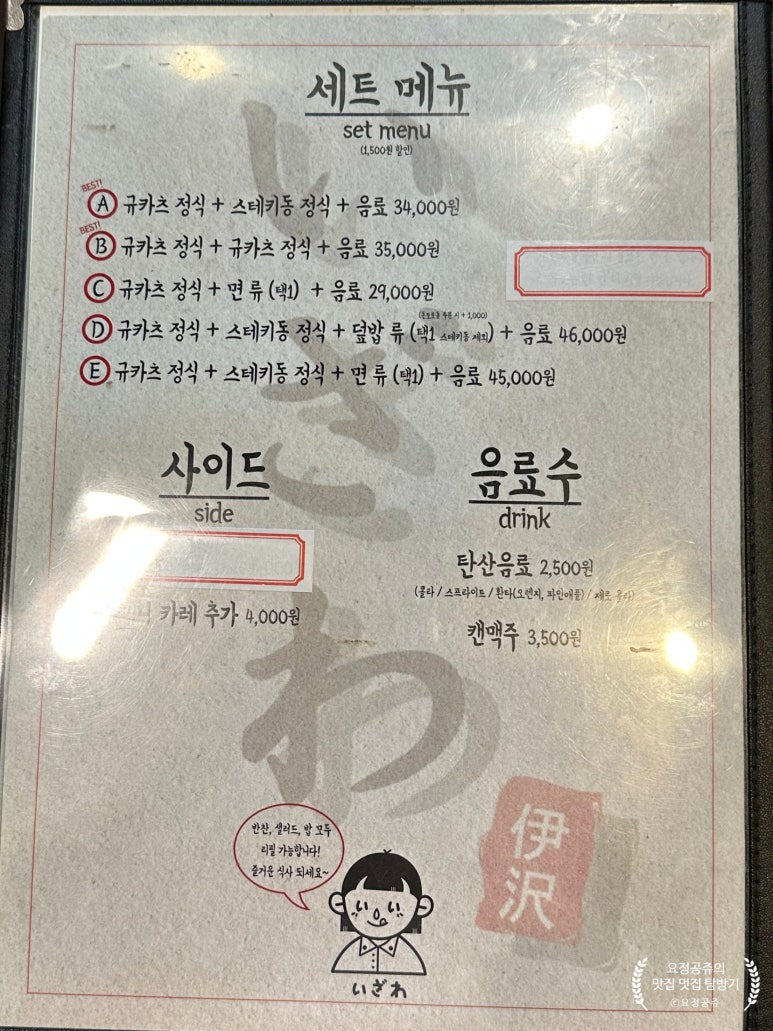 세트 메뉴
set menu
(1,500원 할인)
BEST!
A 규카츠 정식 + 스테키동 정식 + 음료 34,000원
BEST!
B 규카츠 정식 + 규카츠 정식 + 음료 35,000원
C 규카츠 정식 + 면 류 (택1) + 음료 29,000원
D 규카츠 정식 + 스테키동 정식 + 덮밥 류 (택1 스테키동 제외) + 음료 46,000원
E 규카츠 정식 + 스테키동 정식 + 면 류 (택1) + 음료 45,000원
사이드
side
카레 추가 4,000원
음료수
drink
탄산음료 2,500원
(콜라 / 스프라이트 / 환타(오렌지, 파인애플) / 제로 콜라)
캔맥주 3,500원
いざわ
반찬, 샐러드, 밥 모두
리필 가능합니다!
즐거운 식사 되세요~
いざわ
伊沢
요정공쥬의
맛집 멋집 탐방기
©요정공쥬